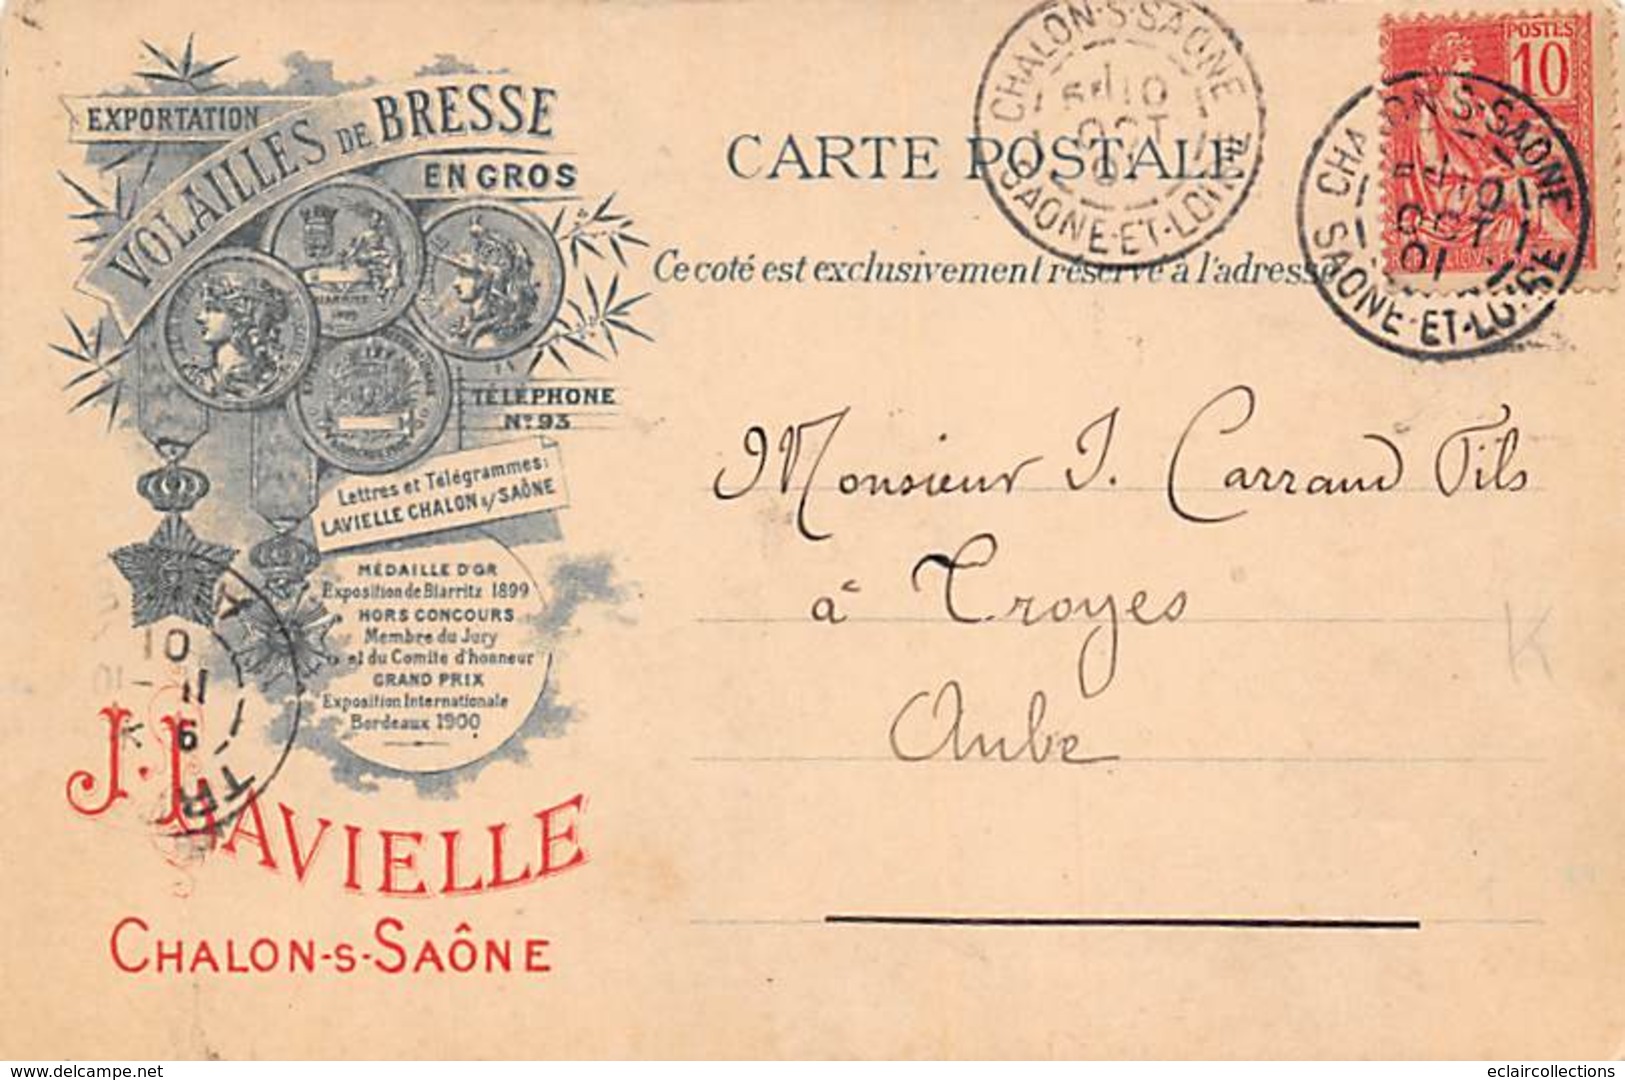 EXPORTATION
VOLAILLES DE BRESSE
EN GROS
TÉLÉPHONE
N° 93
Lettres et Télégrammes:
LAVIELLE CHALON s/ SAÔNE
MÉDAILLE D'OR
Exposition de Biarritz 1899
HORS CONCOURS
Membre du Jury
et du Comité d'honneur
GRAND PRIX
Exposition Internationale
Bordeaux 1900
J. LAVIELLE
CHALON-S-SAÔNE
CARTE POSTALE
Ce coté est exclusivement réservé à l'adresse
CHALON-S-SAONE
10
OCT
01
SAONE-ET-LOIRE
POSTES
10
CHALON-S-SAONE
10
OCT
01
SAONE-ET-LOIRE
Monsieur J. Carrand Fils
à Troyes
Aube
K
delcampe.net
eclaircollections